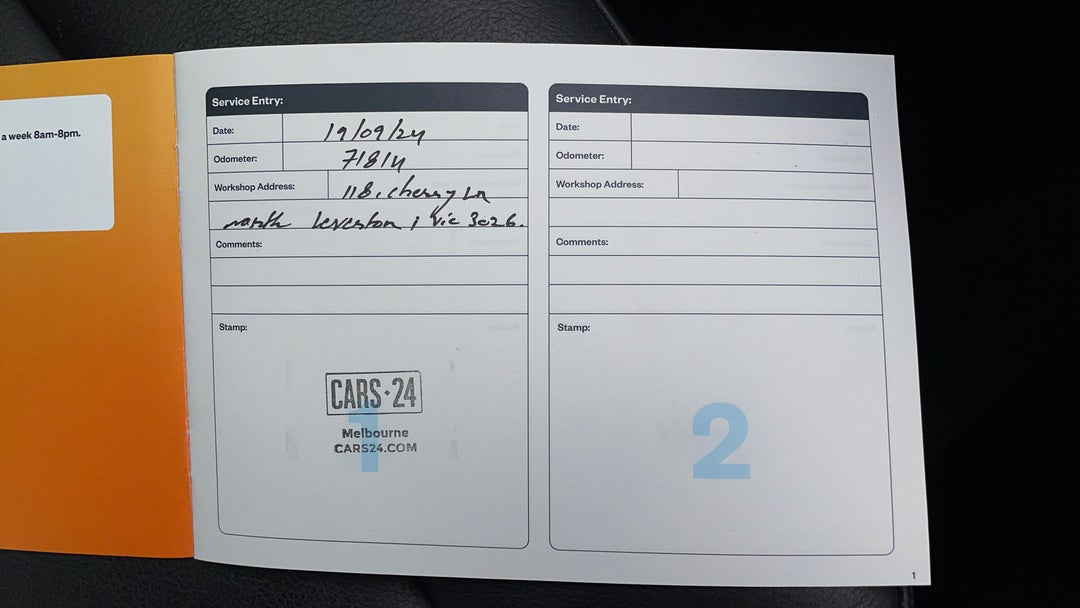 a week 8am-8pm.
Service Entry:
Date: 19/09/24
Odometer: 71814
Workshop Address: 118, cherry Ln
north leverton, Vic 3026.
Comments:
Stamp:
CARS·24
1
Melbourne
CARS24.COM
Service Entry:
Date:
Odometer:
Workshop Address:
Comments:
Stamp:
2
1